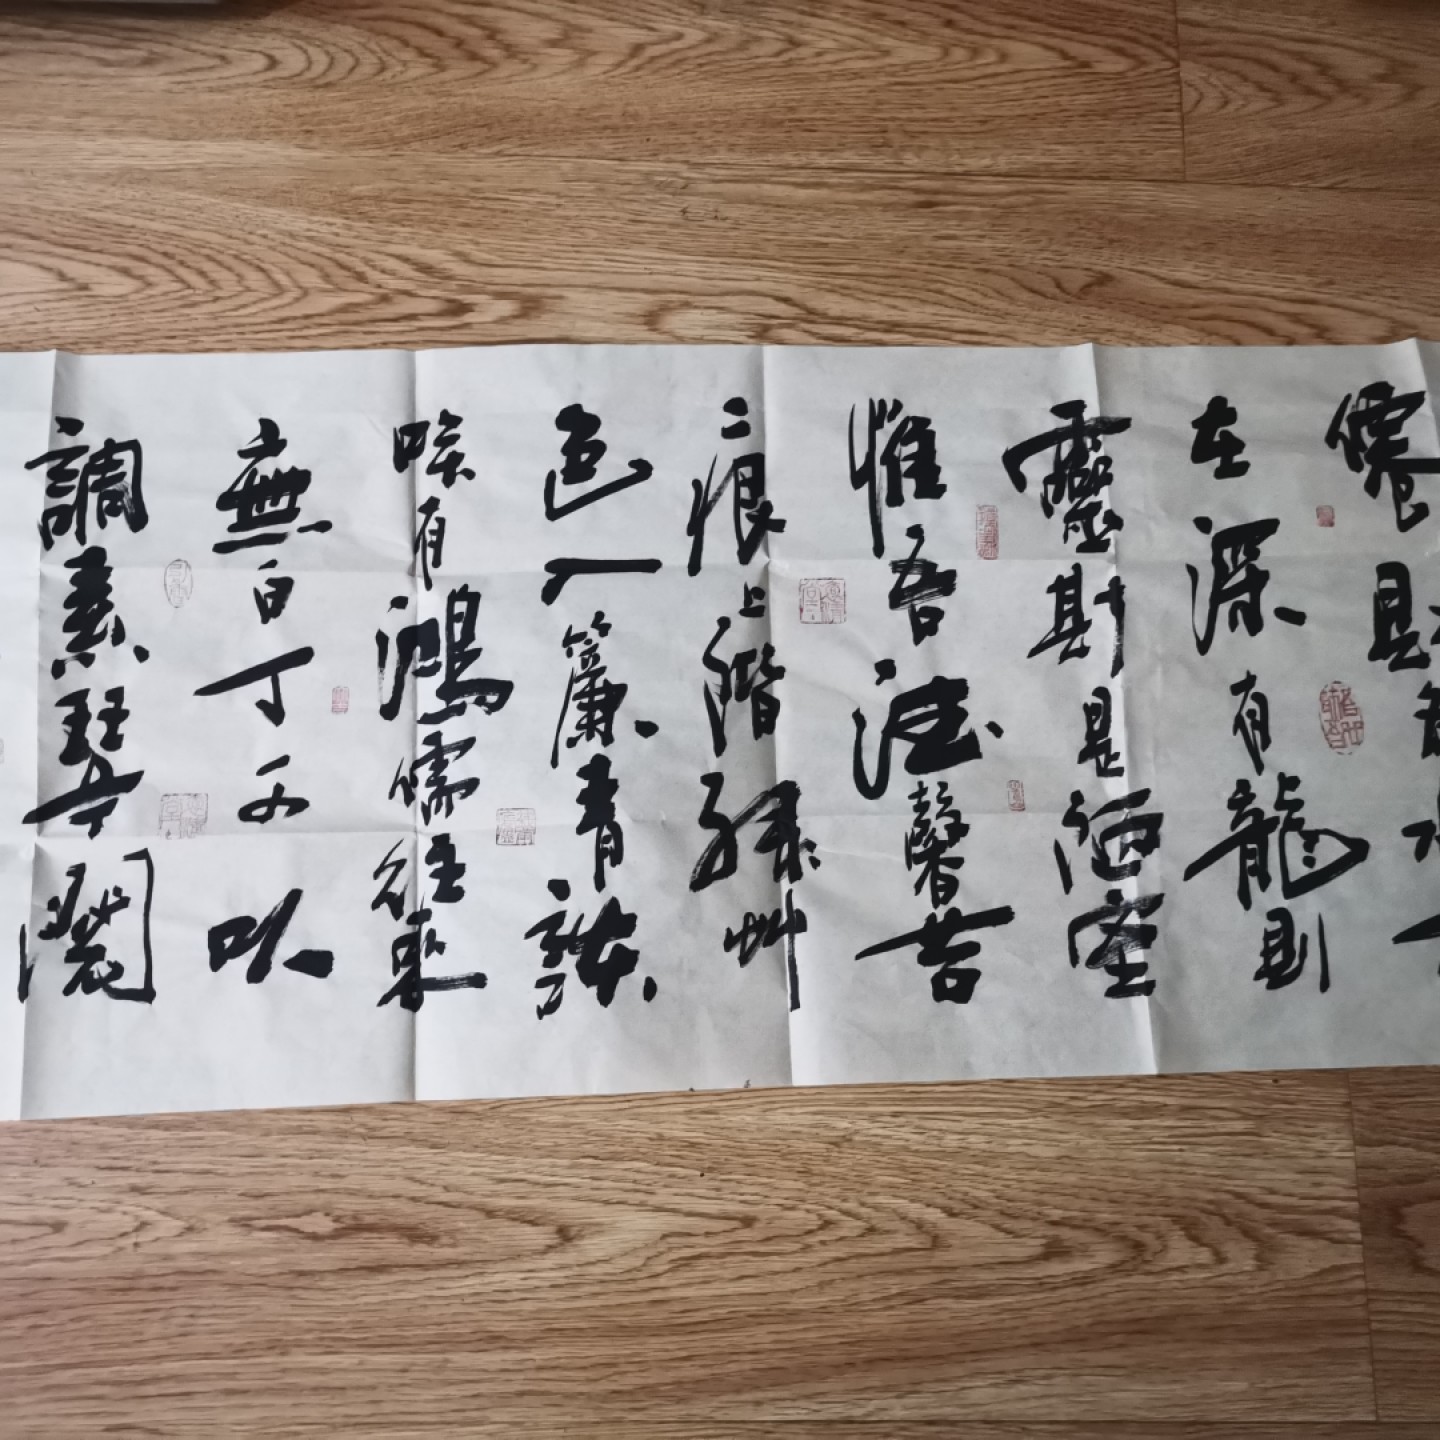 僊則名水不
在深有龍則
靈斯是陋室
惟吾德馨苔
痕上階綠艸
色入簾青談
咲有鴻儒往來
無白丁可以
調素琴閱